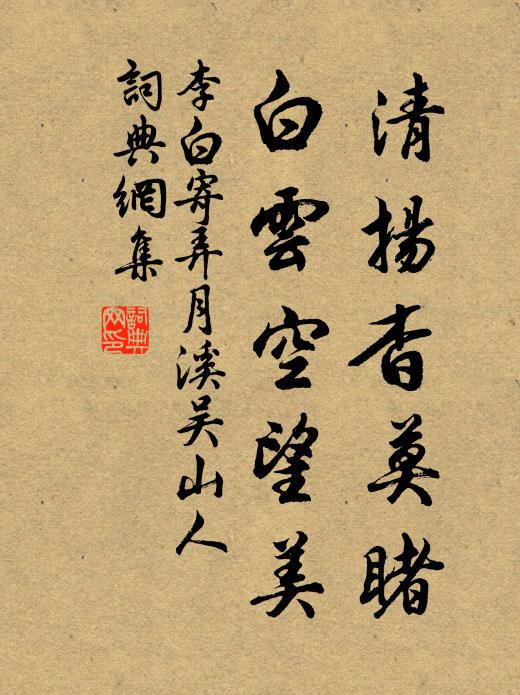 清揚杳莫睹
白雲空望美
李白寄弄月溪吴山人
詞典網集
詞典网印